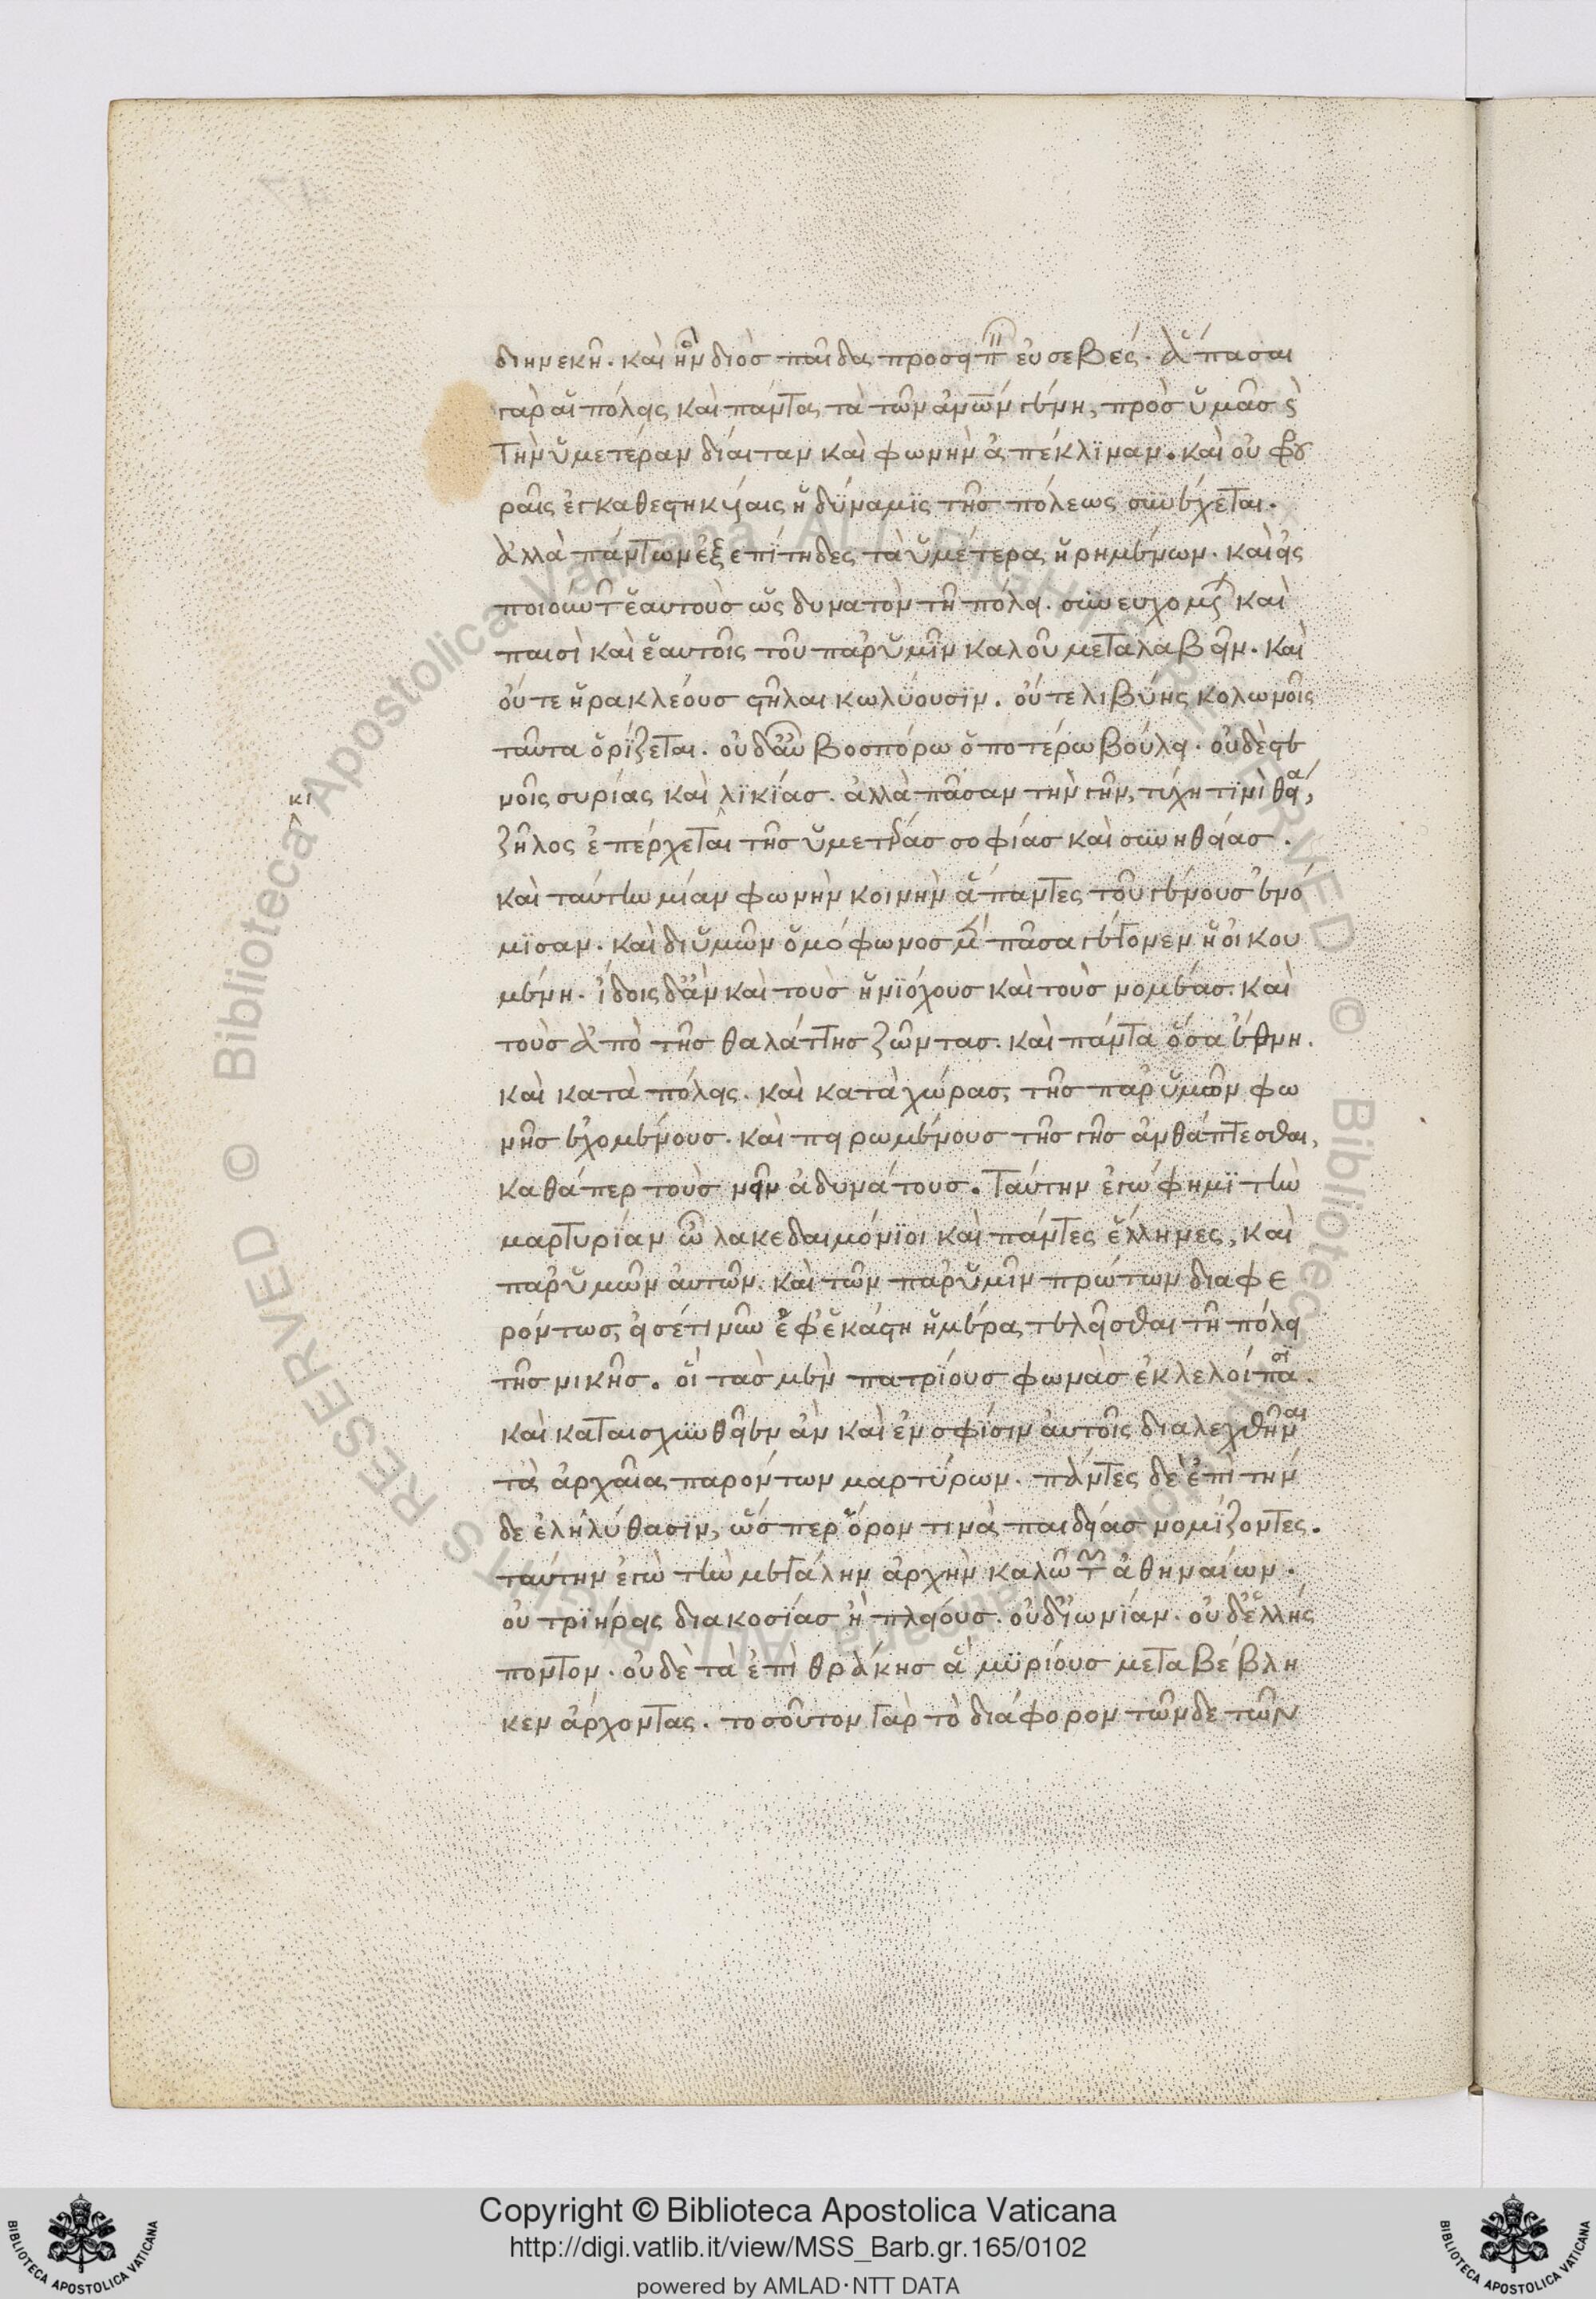 διηνεκῆ. καὶ ἣν διὸς παῖδα προσειπεῖν εὐσεβές. ἅπασαι
γὰρ αἱ πόλεις καὶ πάντα τὰ τῶν ἀνων γένη, πρὸς ὑμᾶς καὶ
τὴν ὑμετέραν δίαιταν καὶ φωνὴν ἀπέκλιναν. καὶ οὐ φρου
ραῖς ἐγκαθεστηκυίαις ἡ δύναμις τῆς πόλεως συνέχεται.
ἀλλὰ πάντων ἐξεπίτηδες τὰ ὑμέτερα ἡρημένων. καὶ εἰσ
ποιούντων ἑαυτοὺς ὡς δυνατὸν τῇ πόλει. συνευχομένων καὶ
παισὶ καὶ ἑαυτοῖς τοῦ παρ' ὑμῖν καλοῦ μεταλαβεῖν. καὶ
οὔτε ἡρακλέους στῆλαι κωλύουσιν. οὔτε λιβύης κολωνοῖς
ταῦτα ὁρίζεται. οὐδ' αὖ βοσπόρω ὁποτέρω βούλει. οὐδὲ στε
νοῖς συρίας καὶ λικίας. ἀλλὰ πᾶσαν τὴν γῆν, τύχη τινὶ θεία,
κι
ζῆλος ἐπέρχεται τῆς ὑμετέρας σοφίας καὶ συνηθείας.
καὶ ταύτην μίαν φωνὴν κοινὴν ἅπαντες τοῦ γένους ἐνό
μισαν. καὶ δι' ὑμῶν ὁμόφωνος μὲν πᾶσα γέγονεν ἡ οἰκου
μένη. ἴδοις δ' ἂν καὶ τοὺς ἡνιόχους καὶ τοὺς νομέας. καὶ
τοὺς ἀπὸ τῆς θαλάττης ζῶντας. καὶ πάντα ὅσα ἔθνη.
καὶ κατὰ πόλεις. καὶ κατὰ χώρας, τῆς παρ' ὑμῶν φω
νῆς ἐχομένους. καὶ πειρωμένους τῆς γῆς ἀνθάπτεσθαι,
καθάπερ τοὺς νεῖν ἀδυνάτους. ταύτην ἐγώ φημι τὴν
μαρτυρίαν ὦ λακεδαιμόνιοι καὶ πάντες ἕλληνες, καὶ
παρ' ὑμῶν αὐτῶν. καὶ τῶν παρ' ὑμῖν πρώτων διαφε
ρόντως, εἰσέτι νῦν ἐφ' ἑκάστη ἡμέρα τελεῖσθαι τῇ πόλει
τῆς νικῆς. οἳ τὰς μὲν πατρίους φωνὰς ἐκλελοίπασι.
καὶ καταισχυνθεῖεν ἂν καὶ ἐν σφίσιν αὐτοῖς διαλεχθῆναι
τὰ ἀρχαῖα παρόντων μαρτύρων. πάντες δὲ ἐπὶ τήν
δε ἐληλύθασιν, ὥσπερ ὅρον τινὰ παιδείας νομίζοντες.
ταύτην ἐγὼ τὴν μεγάλην ἀρχὴν καλῶ τὴν ἀθηναίων.
οὐ τριήρεις διακοσίας ἢ πλείους. οὐδ' ἰωνίαν. οὐδ' ἑλλήσ
ποντον. οὐδὲ τὰ ἐπὶ θράκης ἃ μυρίους μεταβέβλη
κεν ἄρχοντας. τοσοῦτον γὰρ τὸ διάφορον τῶνδε τῶν
Copyright © Biblioteca Apostolica Vaticana
http://digi.vatlib.it/view/MSS_Barb.gr.165/0102
powered by AMLAD·NTT DATA